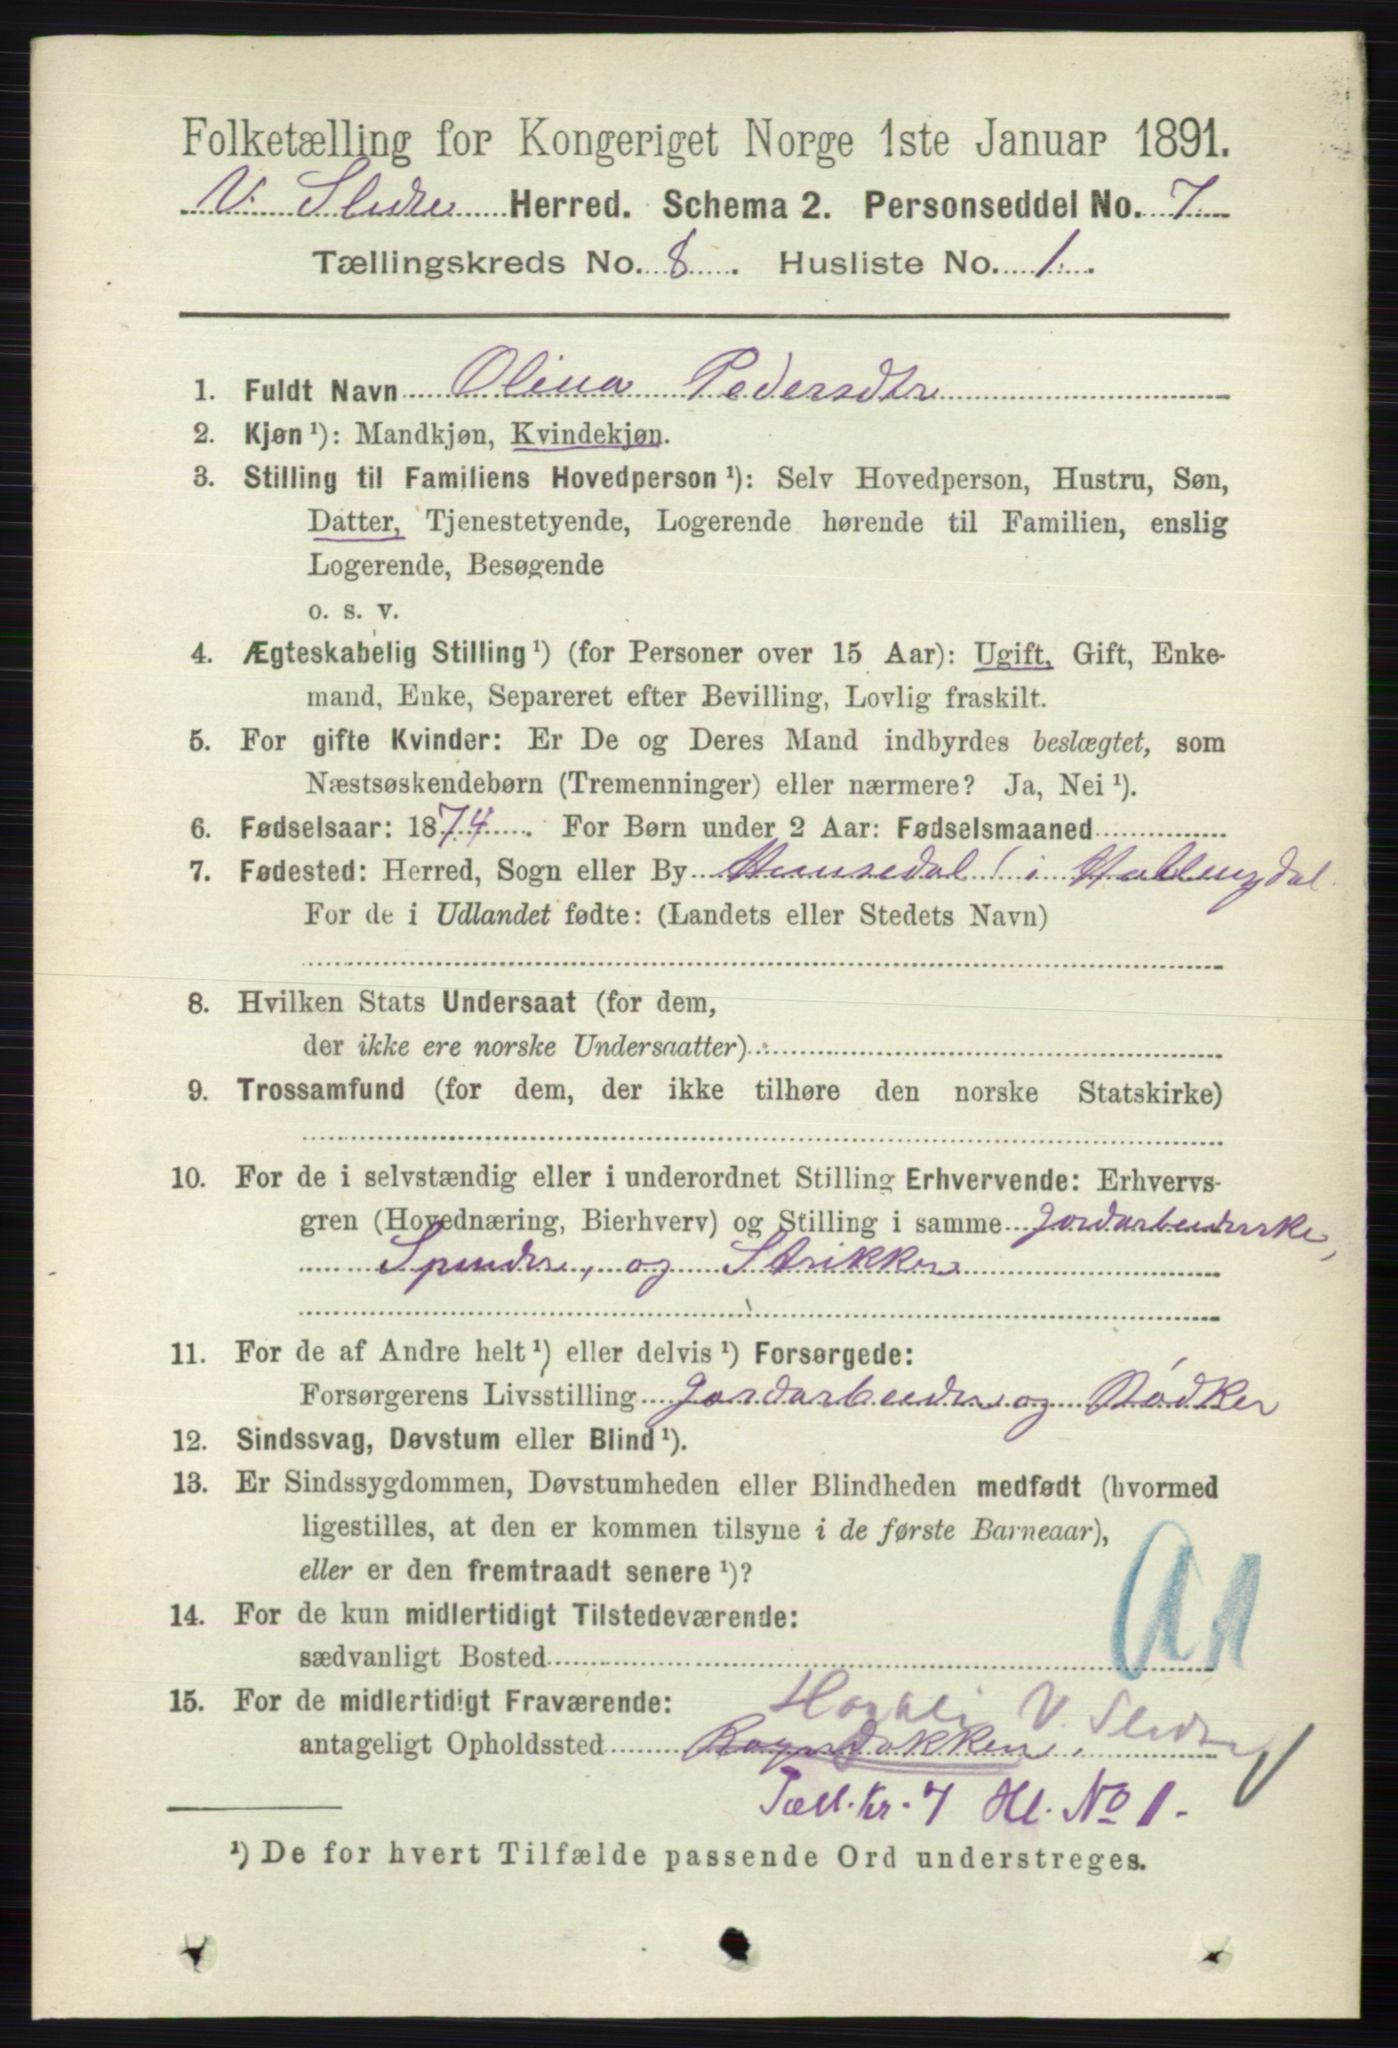 Folketælling for Kongeriget Norge 1ste Januar 1891.
V. Slidre Herred. Schema 2. Personseddel No. 7
Tællingskreds No. 8. Husliste No. 1.
1. Fuldt Navn Olina Pedersdtr
2. Kjøn ¹): Mandkjøn, Kvindekjøn.
3. Stilling til Familiens Hovedperson ¹): Selv Hovedperson, Hustru, Søn,
Datter, Tjenestetyende, Logerende hørende til Familien, enslig
Logerende, Besøgende
o. s. v.
4. Ægteskabelig Stilling ¹) (for Personer over 15 Aar): Ugift, Gift, Enke-
mand, Enke, Separeret efter Bevilling, Lovlig fraskilt.
5. For gifte Kvinder: Er De og Deres Mand indbyrdes beslægtet, som
Næstsøskendebørn (Tremenninger) eller nærmere? Ja, Nei ¹).
6. Fødselsaar: 1874. For Børn under 2 Aar: Fødselsmaaned
7. Fødested: Herred, Sogn eller By Hemsedal i Hallingdal
For de i Udlandet fødte: (Landets eller Stedets Navn)
8. Hvilken Stats Undersaat (for dem,
der ikke ere norske Undersaatter)
9. Trossamfund (for dem, der ikke tilhøre den norske Statskirke)
10. For de i selvstændig eller i underordnet Stilling Erhvervende: Erhvervs-
gren (Hovednæring, Bierhverv) og Stilling i samme Jordarbeiderske,
Spinder, og Strikker
11. For de af Andre helt ¹) eller delvis ¹) Forsørgede:
Forsørgerens Livsstilling Jordarbeider og Bødker
12. Sindssvag, Døvstum eller Blind ¹).
13. Er Sindssygdommen, Døvstumheden eller Blindheden medfødt (hvormed
ligestilles, at den er kommen tilsyne i de første Barneaar),
eller er den fremtraadt senere ¹)?
14. For de kun midlertidigt Tilstedeværende:
sædvanligt Bosted
15. For de midlertidigt Fraværende: V. Slidre
antageligt Opholdssted
Tæll.kr. 7 Hl. No 1.
¹) De for hvert Tilfælde passende Ord understreges.